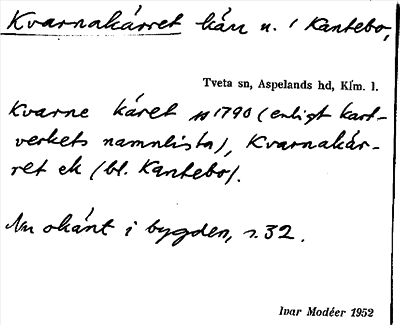 Kvarnakärret kärr n. i Kantebo,
Tveta sn, Aspelands hd, Klm. l.
Kvarne käret 1790 (enligt kart-
verkets namnlista), Kvarnakär-
ret ek (bl. Kantebo).
Nu okänt i bygden, s. 32.
Ivar Modéer 1952